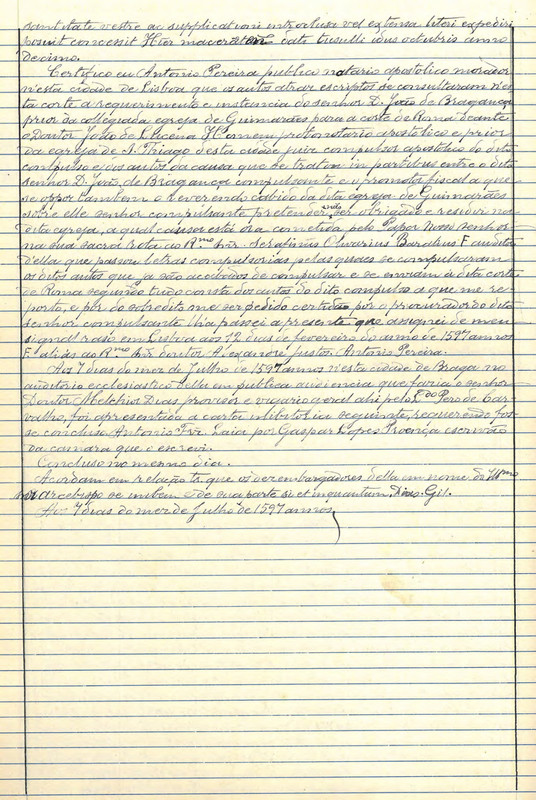 santitate vestre ac supplicationi introclusa vel extensa literi expediri
posuit concessit Hier macerat dats tusulli idus octubris anno
decimo.
Certifico eu Antonio Pereira publico notario apostolico morador
n'esta cidade de Lisboa que os autos atraz escriptos se consultaram n'es
ta corte a requerimento e instancia do senhor D. João de Bragança
prior da collegiada egreja de Guimarães para a corte de Roma deante
o Doutor João de Lucena Homem protonotario apostolico e prior
da egreja de S. Thiago d'esta cidade juiz compulsor apostolico do dito
compulso e dos autos da causa que se tratou in partibus entre o dito
senhor D. João de Bragança compulsante e o promotor fiscal a que
se oppoz tambem o reverendo cabido da dita egreja de Guimarães
sobre elle senhor compulsante pretender ser obrigado e residir na
dita egreja, a qual causa está ora comettida pelo Papa Nosso Senhor
na sua sacra rota ao Rmo Snr. Serafinus Olivarius Baralius F auditor
d'ella que passou letras compulsorias pelas quaes se compulsaram
os ditos autos que ja são acabados de compulsar e se enviam á dita corte
de Roma segundo tudo consta dos autos do dito compulso a que me re-
porto, e por do sobredito me ser pedido certidão por o procurador do dito
senhor compulsante lh'a passei a presente que assignei de meu
signal raso em Lisboa aos 12 dias de fevereiro do anno de 1597 annos
F. aliás ao Rmo Snr doutor Alexandre Justos. Antonio Pereira.
Aos 7 dias do mez de Julho de 1597 annos n'esta cidade de Braga no
auditorio ecclesiastico d'ella em publica audiencia que fazia o senhor
Doutor Melchior Dias provisor e vigario geral ahi pelo Ldo Pero de Car-
valho, foi apresentada a carta inhibitoria seguinte, requerendo fos-
se conclusa Antonio Frz. Laia por Gaspar Lopes Proença escrivão
da camara que o escrevi.
Concluso no mesmo dia.
Acordam em relação tt. que os dezembargadores d'ella em nome do Illmo
Snr arcebispo se inhibem e de sua parte si et inquantum, Dias. Gil.
Aos 7 dias do mez de Julho de 1597 annos